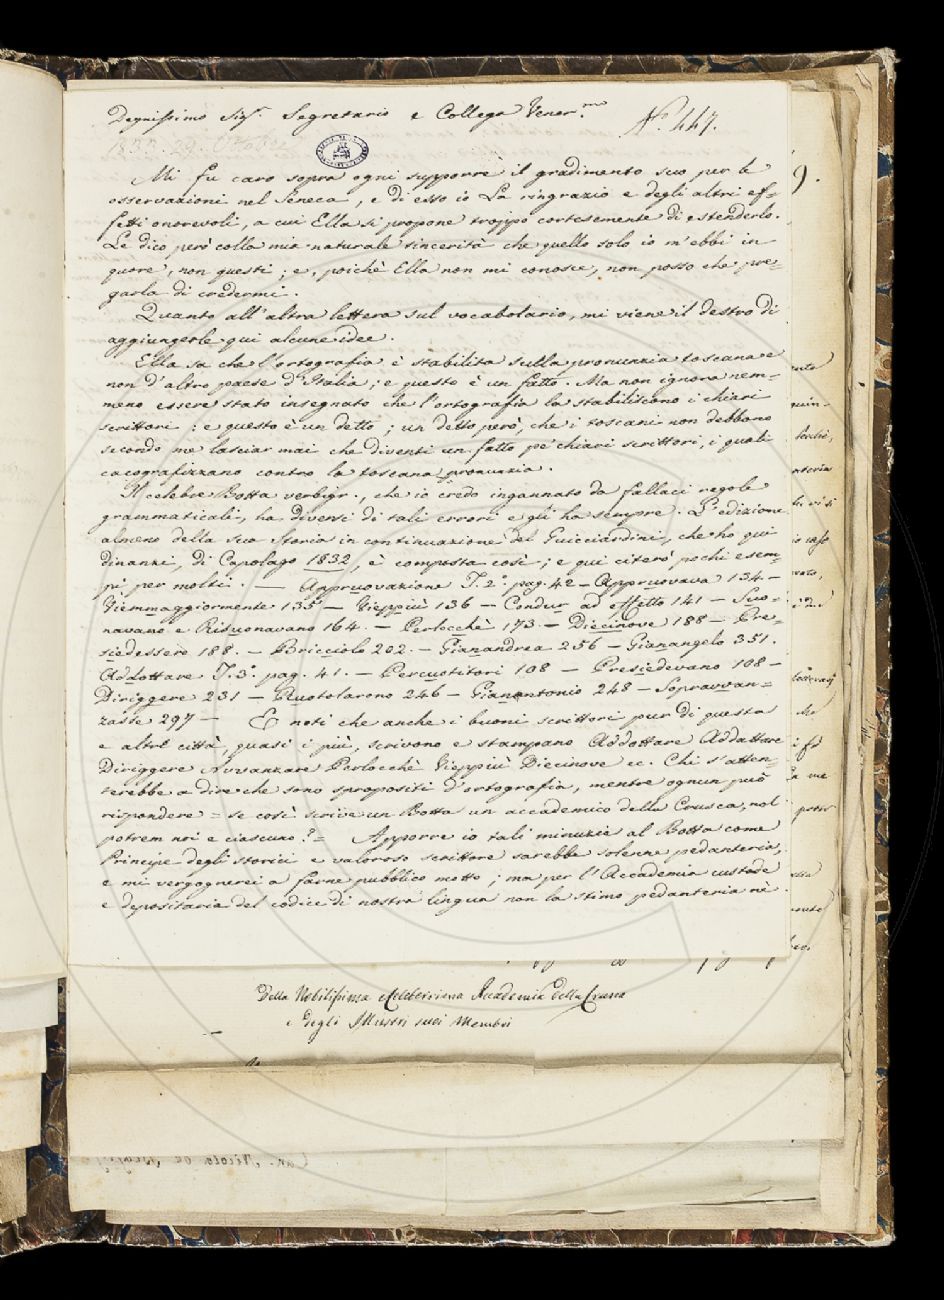 Degnissimo Sig.r Segretario e Collega Vener.mo
N.° 447.
1833. 29. Ottobre
Mi fu caro sopra ogni supporre il gradimento suo per le
osservazioni nel Seneca, e di esso io La ringrazio e degli altri ef-
fetti onorevoli, a cui Ella si propone troppo cortesemente di estenderlo.
Le dico però colla mia naturale sincerità che quello solo io m'ebbi in
quore, non questi; e, poichè Ella non mi conosce, non posso che pre-
garla di credermi.
Quanto all'altra lettera sul vocabolario, mi viene il destro di
aggiungerle qui alcune idee.
Ella sa che l'ortografia è stabilita sulla pronunzia toscana e
non d'altro paese d'Italia; e questo è un fatto. Ma non ignora nem-
meno essere stato insegnato che l'ortografia la stabiliscono i chiari
scrittori; e questo è un detto; un detto però, che i toscani non debbono
secondo me lasciar mai che diventi un fatto pe' chiari scrittori, i quali
cacografizzano contro la toscana pronunzia.
Il celebre Botta verbigr., che io credo ingannato da fallaci regole
grammaticali, ha diversi di tali errori e gli ha sempre. L'edizione
almeno della sua Storia in continuazione del Guicciardini, che ho qui
dinanzi, di Capolago 1832, è composta così; e qui citerò pochi esem-
pi per molti. — Appruovazione T. 2.° pag. 42 — Appruovava 134 —
Viemmaggiormente 135 — Vieppiù 136 — Condur ad effetto 141 — Suo-
navano e Risuonavano 164. — Perlocchè 173 — Diecinove 188 — Pre-
siedessero 188. — Bricciolo 202. — Gianandrea 256 — Gianangelo 351.
Addottare T. 3.° pag. 41. — Percuotitori 108 — Presiedevano 108 —
Diriggere 231 — Pruotolarono 246 — Gianantonio 248 — Sopravvan-
zaste 297 — E noti che anche i buoni scrittori pur di questa
e altre città, quasi i più, scrivono e stampano Addottare Addattare
Diriggere Avvanzare Perlocchè Vieppiù Diecinove ec. Chi s'atten-
terebbe a dire che sono spropositi d'ortografia, mentre ognun può
rispondere = se così scrive un Botta un accademico della Crusca, nol
potrem noi e ciascuno? = Apporre io tali minuzie al Botta come
Principe degli storici e valoroso scrittore sarebbe solenne pedanteria,
e mi vergognerei a farne pubblico motto; ma per l'Accademia custode
e depositaria del codice di nostra lingua non la stimo pedanteria nè
Della Nobilissima e Celeberrima Accademia della Crusca
e degli Illustri suoi Membri